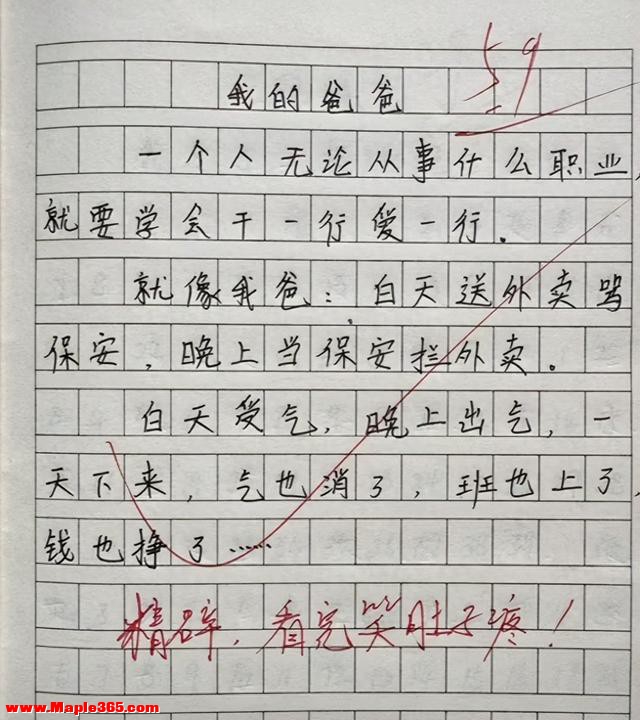 59
我的爸爸
一个人无论从事什么职业，
就要学会干一行爱一行.
就像我爸：白天送外卖骂
保安，晚上当保安拦外卖。
白天受气，晚上出气，一
天下来，气也消了，班也上了，
钱也挣了……
精辟，看完笑肚子疼！
www.Maple365.com